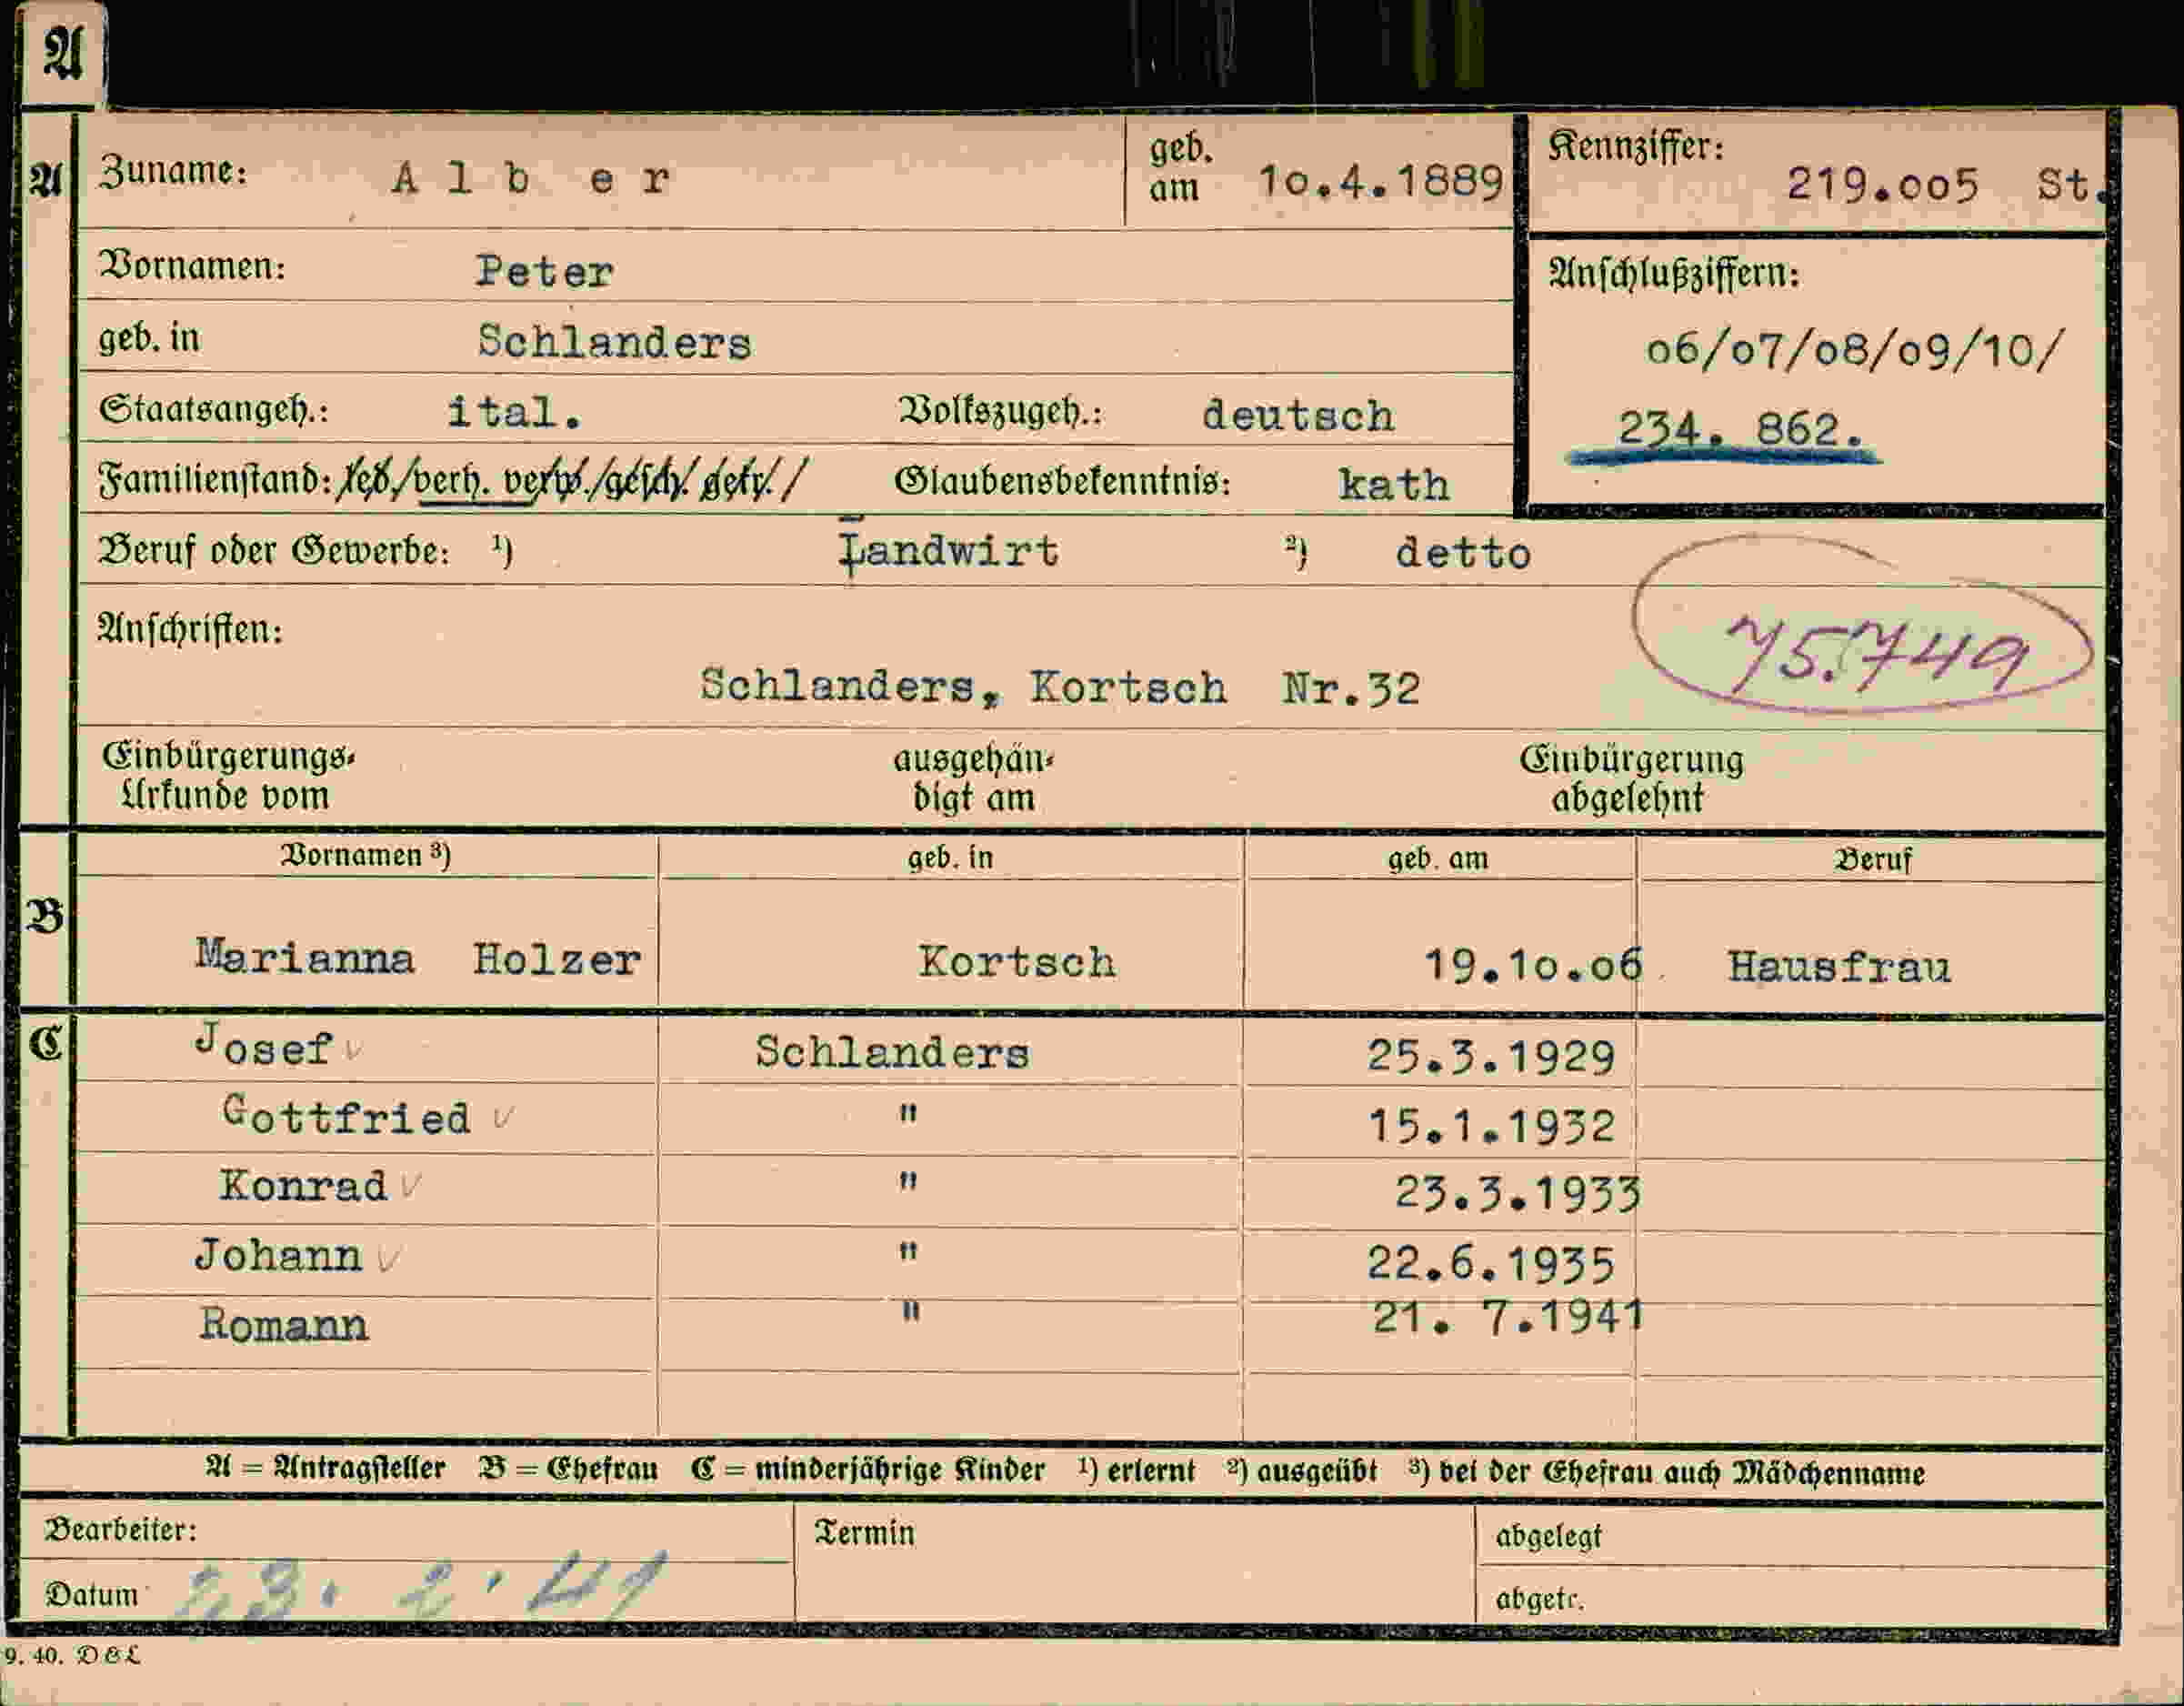 A
A Zuname: A l b e r geb. am 10.4.1889 Kennziffer: 219.005 St.
Vornamen: Peter Anschlußziffern:
geb. in Schlanders 06/07/08/09/10/
Staatsangeh.: ital. Volkszugeh.: deutsch 234. 862.
Familienstand: led./verh. verw./gesch. getr./ Glaubensbekenntnis: kath
Beruf oder Gewerbe: ¹) Landwirt ²) detto
Anschriften: 75.749
Schlanders, Kortsch Nr.32
Einbürgerungs- ausgehän- Einbürgerung
Urkunde vom digt am abgelehnt
Vornamen ³) geb. in geb. am Beruf
B
Marianna Holzer Kortsch 19.10.06 Hausfrau
C Josef Schlanders 25.3.1929
Gottfried " 15.1.1932
Konrad " 23.3.1933
Johann " 22.6.1935
Romann " 21. 7.1941
A = Antragsteller B = Ehefrau C = minderjährige Kinder ¹) erlernt ²) ausgeübt ³) bei der Ehefrau auch Mädchenname
Bearbeiter: Termin abgelegt
Datum abgetr.
9. 40. D & L